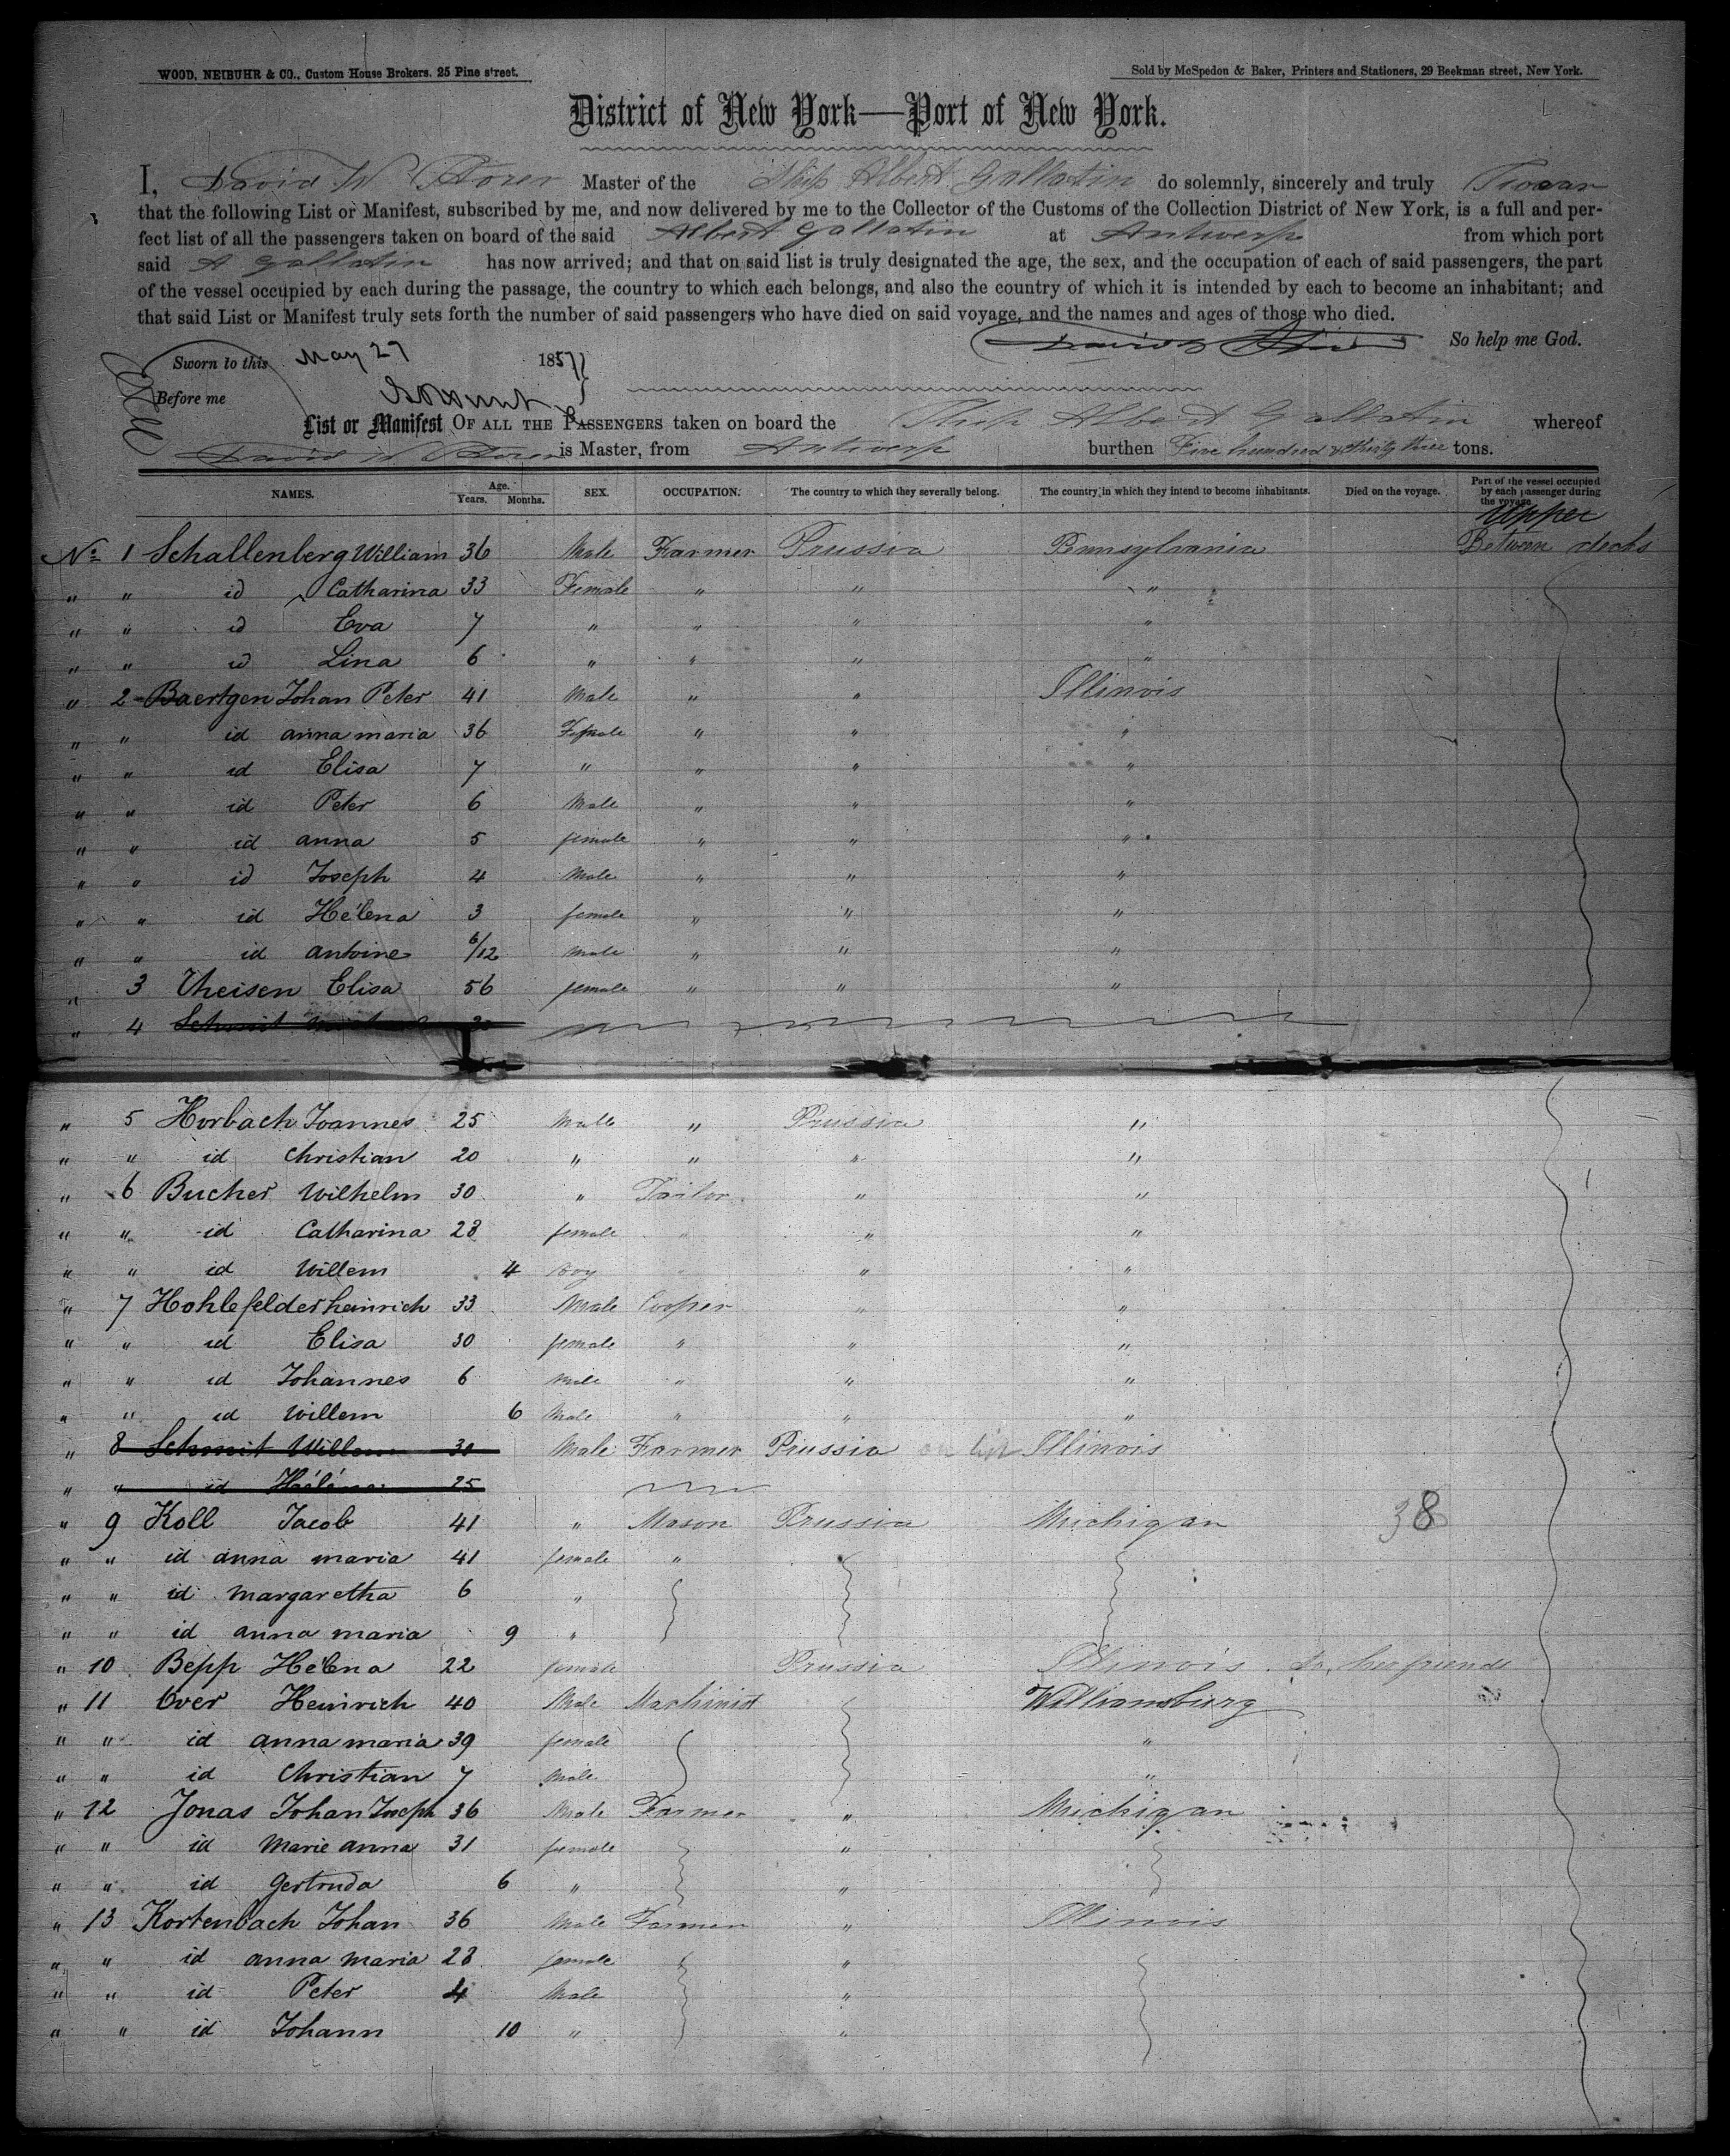 WOOD, NEIBUHR & CO., Custom House Brokers. 25 Pine street.
Sold by McSpedon & Baker, Printers and Stationers, 29 Beekman street, New York.
District of New York—Port of New York.
I, David W Storer Master of the Ship Albert Gallatin do solemnly, sincerely and truly Swear
that the following List or Manifest, subscribed by me, and now delivered by me to the Collector of the Customs of the Collection District of New York, is a full and per-
fect list of all the passengers taken on board of the said Albert Gallatin at Antwerp from which port
said A Gallatin has now arrived; and that on said list is truly designated the age, the sex, and the occupation of each of said passengers, the part
of the vessel occupied by each during the passage, the country to which each belongs, and also the country of which it is intended by each to become an inhabitant; and
that said List or Manifest truly sets forth the number of said passengers who have died on said voyage, and the names and ages of those who died.
So help me God.
Sworn to this May 27 1857
Before me
List or Manifest OF ALL THE PASSENGERS taken on board the Ship Albert Gallatin whereof
David W Storer is Master, from Antwerp burthen Five hundred & thirty three tons.
NAMES. Age. Years. Months. SEX. OCCUPATION. The country to which they severally belong. The country in which they intend to become inhabitants. Died on the voyage. Part of the vessel occupied by each passenger during the voyage
Upper
No 1 Schallenberg William 36 Male Farmer Prussia Pennsylvania Between decks
" " id Catharina 33 Female " " "
" " id Eva 7 " " " "
" " id Lina 6 " " " "
" 2 Baertgen Johan Peter 41 Male " " Illinois
" " id anna maria 36 Female " " "
" " id Elisa 7 " " " "
" " id Peter 6 Male " " "
" " id anna 5 female " " "
" " id Joseph 4 Male " " "
" " id Heléna 3 female " " "
" " id antoine 6/12 male " " "
" 3 Theisen Elisa 56 female " " "
" 4 Schmit
" 5 Horbach Joannes 25 Male " Prussia "
" " id Christian 20 " " " "
" 6 Bucher Wilhelm 30 " Tailor " "
" " id Catharina 28 female " " "
" " id Willem 4 boy " " "
" 7 Hohlefelder heinrich 33 Male Cooper " "
" " id Elisa 30 female " " "
" " id Johannes 6 Male " " "
" " id Willem 6 Male " " "
" 8 Schmit Willem 30 Male Farmer Prussia Illinois
" " id Héléna 25
" 9 Koll Jacob 41 " Mason Prussia Michigan 38
" " id anna maria 41 female "
" " id margaretha 6 "
" " id anna maria 9 "
" 10 Bepp Heléna 22 female Prussia Illinois to her friends
" 11 Over Heinrich 40 Male Machinist Williamsburg
" " id anna maria 39 female "
" " id Christian 7 Male "
" 12 Jonas Johan Joseph 36 Male Farmer " Michigan
" " id Marie anna 31 female "
" " id Gertruda 6 " "
" 13 Kortenbach Johan 36 Male Farmer " Illinois
" " id anna maria 28 female "
" " id Peter 4 Male "
" " id Johann 10 " "